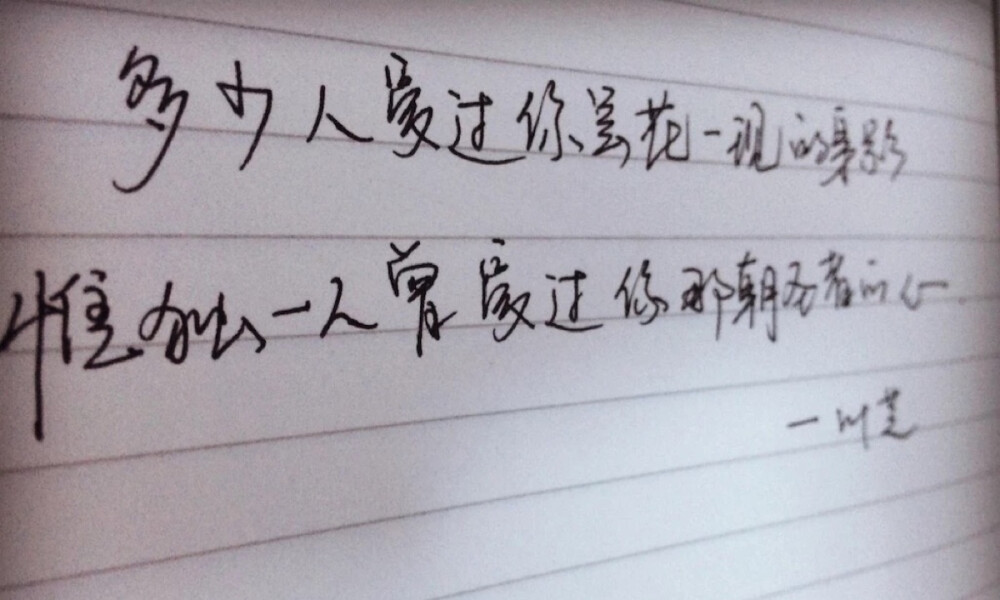 多少人爱过你昙花一现的身影
惟独一人曾爱过你那朝圣者的心
—叶芝